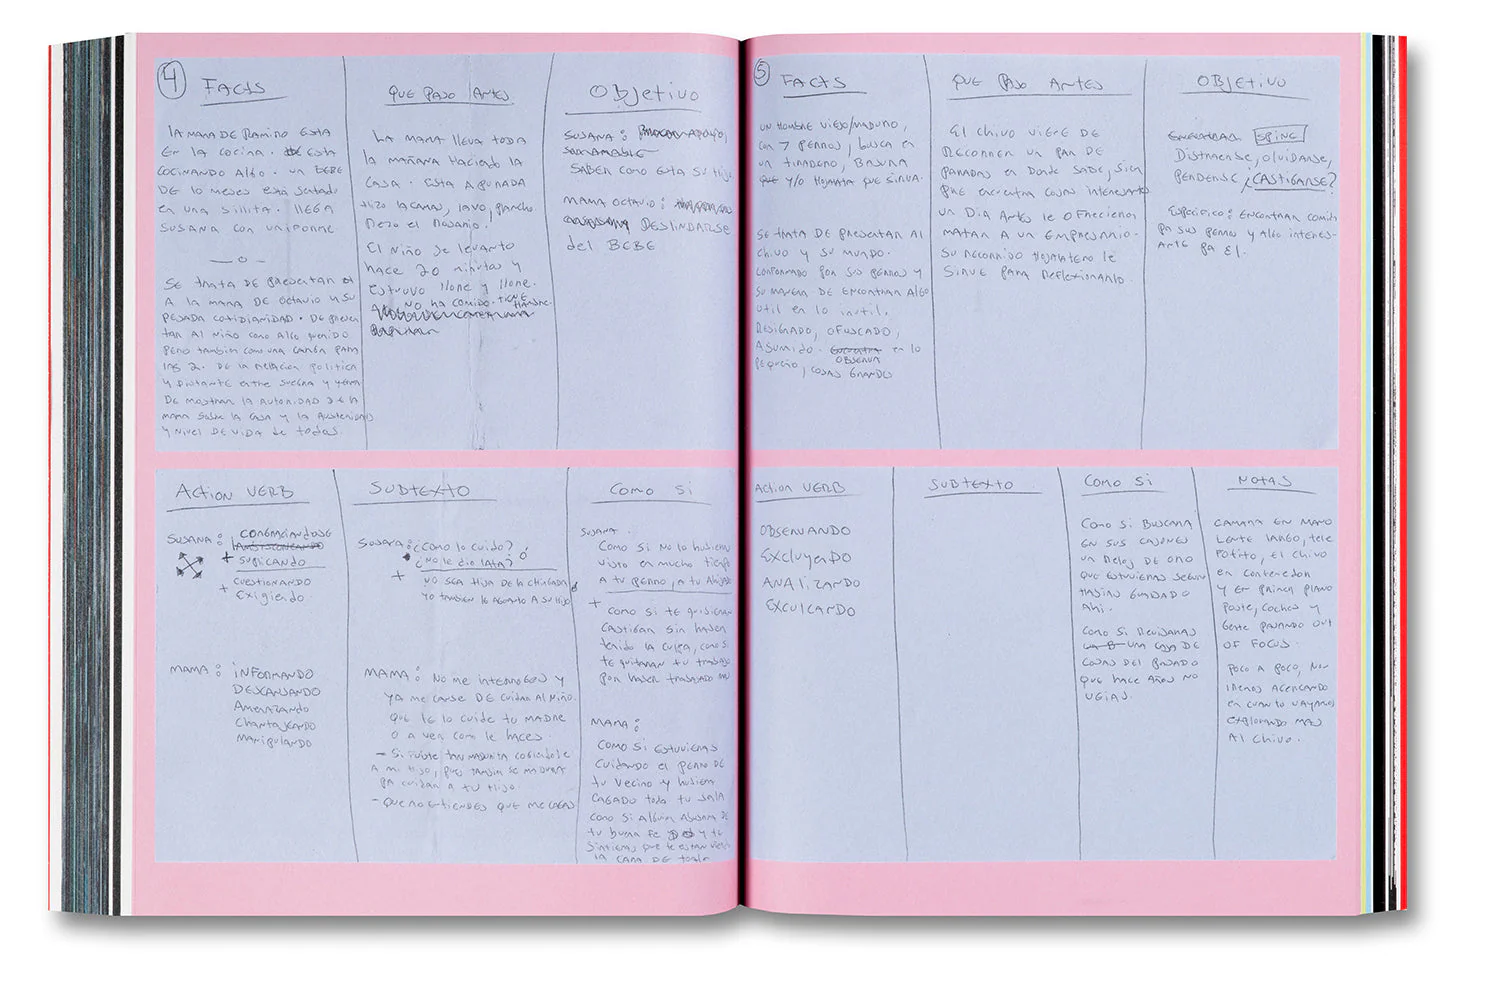 4 FACTS
LA MAMA DE RAMIRO ESTA
EN LA COCINA. ESTA
COCINANDO ALGO. UN BEBE
DE 10 MESES ESTA SENTADO
EN UNA SILLITA. LLEGA
SUSANA CON UNIFORME
SE TRATA DE PRESENTAR
A LA MAMA DE OCTAVIO Y SU
PESADA COTIDIANIDAD. DE PRESEN
TAR AL NIÑO COMO ALGO QUERIDO
PERO TAMBIEN COMO UNA CARGA PARA
LAS 2. DE LA RELACION POLITICA
Y DISTANTE ENTRE SUEGRA Y YERNA
DE MOSTRAR LA AUTORIDAD DE LA
MAMA SOBRE LA CASA Y LA AUSTERIDAD
Y NIVEL DE VIDA DE TODOS.
QUE PASO ANTES
LA MAMA LLEVA TODA
LA MAÑANA HACIENDO LA
CASA. ESTA APURADA
HIZO LA CAMA, LAVO, PLANCHO
REZO EL ROSARIO.
EL NIÑO SE LEVANTO
HACE 20 MINUTOS Y
ESTUVO LLORE Y LLORE.
NO HA COMIDO. TIENE HAMBRE.
OBJETIVO
SUSANA:
SABER COMO ESTA SU HIJO
MAMA OCTAVIO:
DESLINDARSE
DEL BEBE
ACTION VERB
SUSANA: CONGRACIANDOSE
+ SUPLICANDO
CUESTIONANDO
+ EXIGIENDO
MAMA: INFORMANDO
DESCANSANDO
AMENAZANDO
CHANTAJEANDO
MANIPULANDO
SUBTEXTO
SUSANA: ¿COMO LO CUIDO?
¿NO LE DIO LATA? Ó
+ NO SEA HIJA DE LA CHINGADA
YO TAMBIEN LE AGUANTO A SU HIJO
MAMA: NO ME INTERROGES Y
YA ME CANSE DE CUIDAR AL NIÑO.
QUE TE LO CUIDE TU MADRE
O A VER COMO LE HACES.
- SI FUISTE TAN MADURITA COGIENDOTE
A MI HIJO, PUES TAMBIEN SE MADURA
PA CUIDAR A TU HIJO
- QUE NO ENTIENDES QUE ME CAGAS
COMO SI
SUSANA.
COMO SI NO LO HUBIERAS
VISTO EN MUCHO TIEMPO
A TU PERRO, A TU AHIJADO
+ COMO SI TE QUISIERAN
CASTIGAR SIN HABER
TENIDO LA CULPA, COMO SI
TE QUITARAN TU TRABAJO
POR HABER TRABAJADO
MAMA:
COMO SI ESTUVIERAS
CUIDANDO EL PERRO DE
TU VECINO Y HUBIERA
CAGADO TODA TU SALA
COMO SI ALGUIEN ABUSARA DE
TU BUENA FE Y TE
SINTIERAS QUE TE ESTAN VIENDO
LA CARA DE
5 FACTS
UN HOMBRE VIEJO/MADURO,
CON 7 PERROS, BUSCA EN
UN TIRADERO, BASURA
Y/O HOJALATA QUE SIRVA.
SE TRATA DE PRESENTAR AL
CHIVO Y SU MUNDO.
CONFORMADO POR SUS PERROS Y
SU MANERA DE ENCONTRAR ALGO
UTIL EN LO INUTIL.
RESIGNADO, OFUSCADO,
ASUMIDO. EN LO
OBSERVA
PEQUEÑO, COSAS GRANDES
QUE PASO ANTES
EL CHIVO VIENE DE
RECORRER UN PAR DE
PARADAS EN DONDE SABE, SIEM
PRE ENCUENTRA COSAS INTERESANTES
UN DIA ANTES LE OFRECIERON
MATAR A UN EMPRESARIO.
SU RECORRIDO HOJALATERO LE
SIRVE PARA REFLEXIONARLO.
OBJETIVO
ENCONTRAR SPINE
DISTRAERSE, OLVIDARSE,
PERDERSE ¿CASTIGARSE?
ESPECIFICO: ENCONTRAR COMIDA
PA SUS PERROS Y ALGO INTERES-
ANTE PA EL.
ACTION VERB
OBSERVANDO
EXCLUYENDO
ANALIZANDO
EXCULCANDO
SUBTEXTO
COMO SI
COMO SI BUSCARA
EN SUS CAJONES
UN RELOJ DE ORO
QUE ESTUVIERAS SEGURO
HABIAS GUARDADO
AHI.
COMO SI REVISARAS
UNA CAJA DE
COSAS DEL PASADO
QUE HACE AÑOS NO
VEIAS.
NOTAS
CAMARA EN MANO
LENTE LARGO, TELE
FOTITO, EL CHIVO
EN CONTENEDOR
Y EN PRIMER PLANO
POSTE, COCHES Y
GENTE PASANDO OUT
OF FOCUS.
POCO A POCO, NOS
IREMOS ACERCANDO
EN CUANTO VAYAMOS
EXPLORANDO MAS
AL CHIVO.